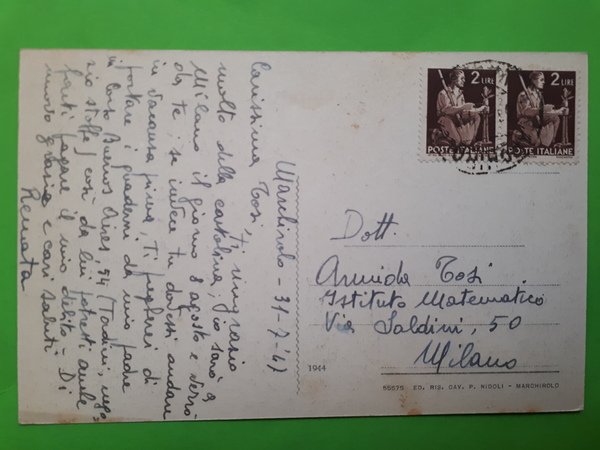 Marchirolo - 31-7-'47
Carissima Tosi,
ti ringrazio
molto della cartolina; io sarò a
Milano il giorno 8 agosto e verrò
da te, se invece tu dovessi andare
in vacanza prima, Ti pregherei di
portare i quaderni da mio padre
in Corso Buenos Aires, 94 (Tondini, nego
zio stoffe) così da lui potresti anche
farti pagare il mio debito - Di
nuovo grazie e cari saluti
Renata
2 LIRE
POSTE ITALIANE
2 LIRE
POSTE ITALIANE
Dott.
Armida Tosi
Istituto Matematico
Via Saldini, 50
Milano
1944
55575 ED. RIS. CAV. P. NIDOLI - MARCHIROLO